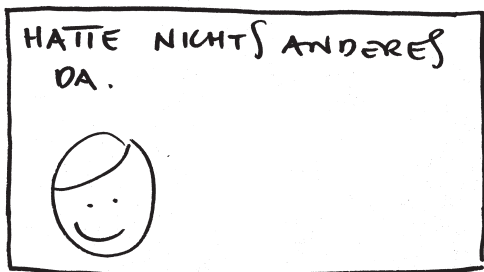 HATTE NICHTS ANDERES
DA.